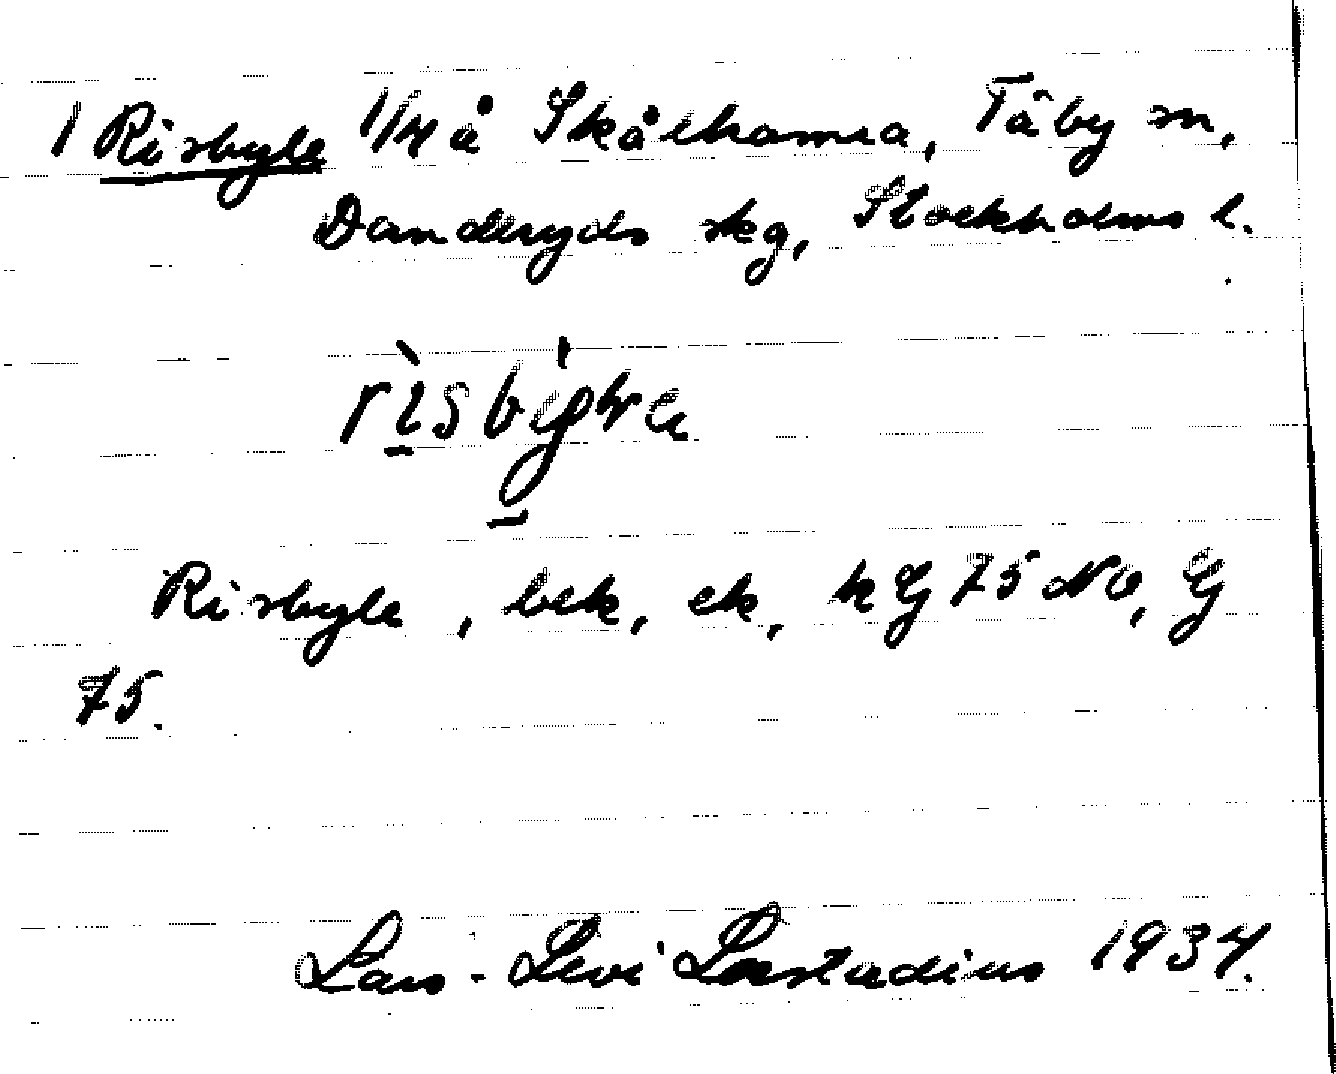 1 Risbyle 1/4 å Skålhamra, Täby sn,
Danderyds skg, Stockholms l.
Risbyle, bek, ek, kG 75 NO, G
75.
Lars-Levi Læstadius 1934.